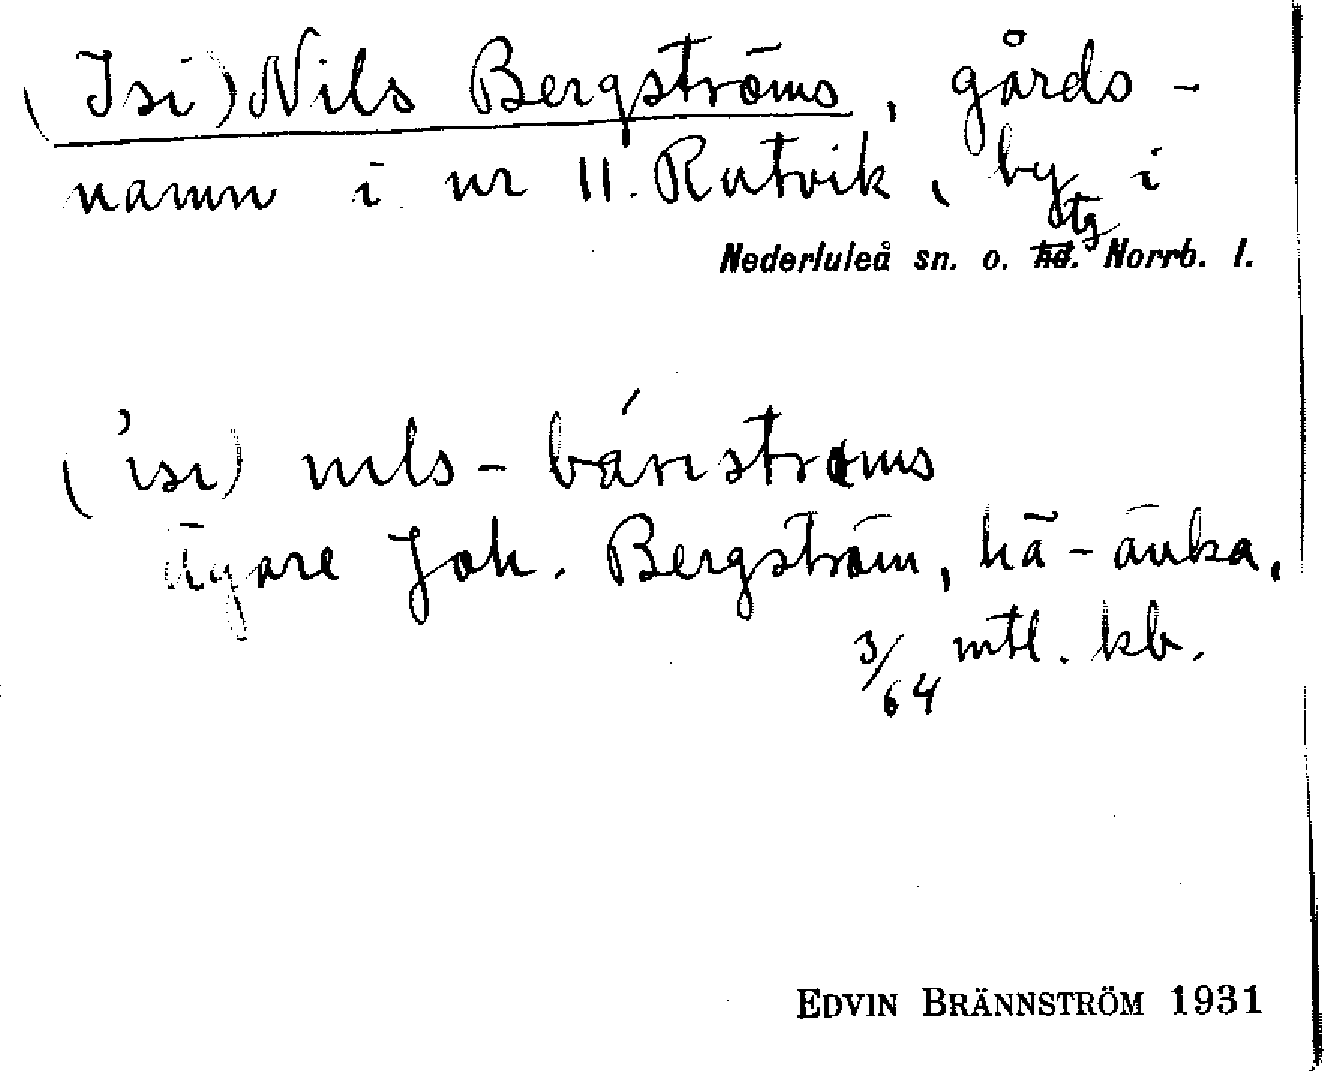 (Isi) Nils Bergströms, gårds-
namn i nr 11. Rutvik, by i
Nederluleå sn. o. tg Norrb. l.
('isi) nils-báristrøms
ägare Joh. Bergström, hä-änka,
3/64 mtl. kb.
EDVIN BRÄNNSTRÖM 1931